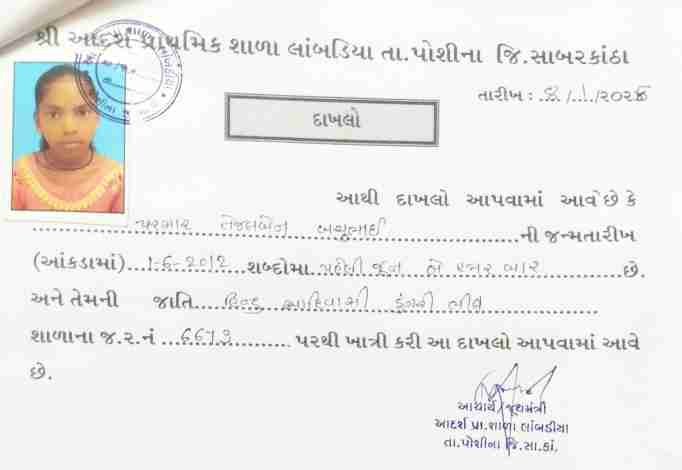 શ્રી આદર્શ પ્રાથમિક શાળા લાંબડિયા તા.પોશીના જિ.સાબરકાંઠા
તારીખ : ..8../..1../૨૦૨૬
દાખલો
આથી દાખલો આપવામાં આવે છે કે
પરમાર તેજલબેન બચુભાઈ ની જન્મતારીખ
(આંકડામાં) 1-6-2012 શબ્દોમા પહેલી જૂન બે હજાર બાર છે.
અને તેમની જાતિ હિન્દુ આદિવાસી ડુંગરી ભીલ
શાળાના જ.ર.નં 6673 પરથી ખાત્રી કરી આ દાખલો આપવામાં આવે
છે.
આચાર્ય/મુખ્યમંત્રી
આદર્શ પ્રા.શાળા લાંબડીયા
તા.પોશીના જિ.સા.કાં.